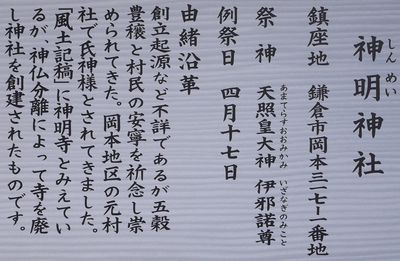 神明神社
しんめい
鎮座地 鎌倉市岡本三一七ー一番地
祭神 天照皇大神 伊邪諾尊
あまてらすおおみかみ いざなぎのみこと
例祭日 四月十七日
由緒沿革
創立起源など不詳であるが五穀
豊穣と村民の安寧を祈念し崇
められてきた。岡本地区の元村
社で氏神様とされてきました。
「風土記稿」に神明寺とみえてい
るが神仏分離によって寺を廃
し神社を創建されたものです。